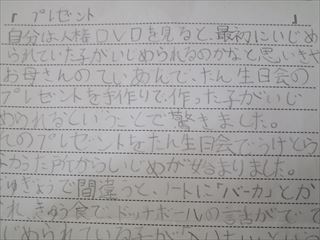 『 プレゼント
自分は人権DVDを見ると、最初にいじめ
られていた子がいじめられるのかなと思いきや
お母さんのていあんで、たん生日会の
プレゼントを手作りで作った子がいじ
められるということで驚きました。
のプレゼントをたん生日会でうけとら
なかった所からいじめが始まりました。
じゅぎょうで間違うと、ノートに「バーカ」とか
れ、きゅう食で、ドッチボールの話がでて
じめられている